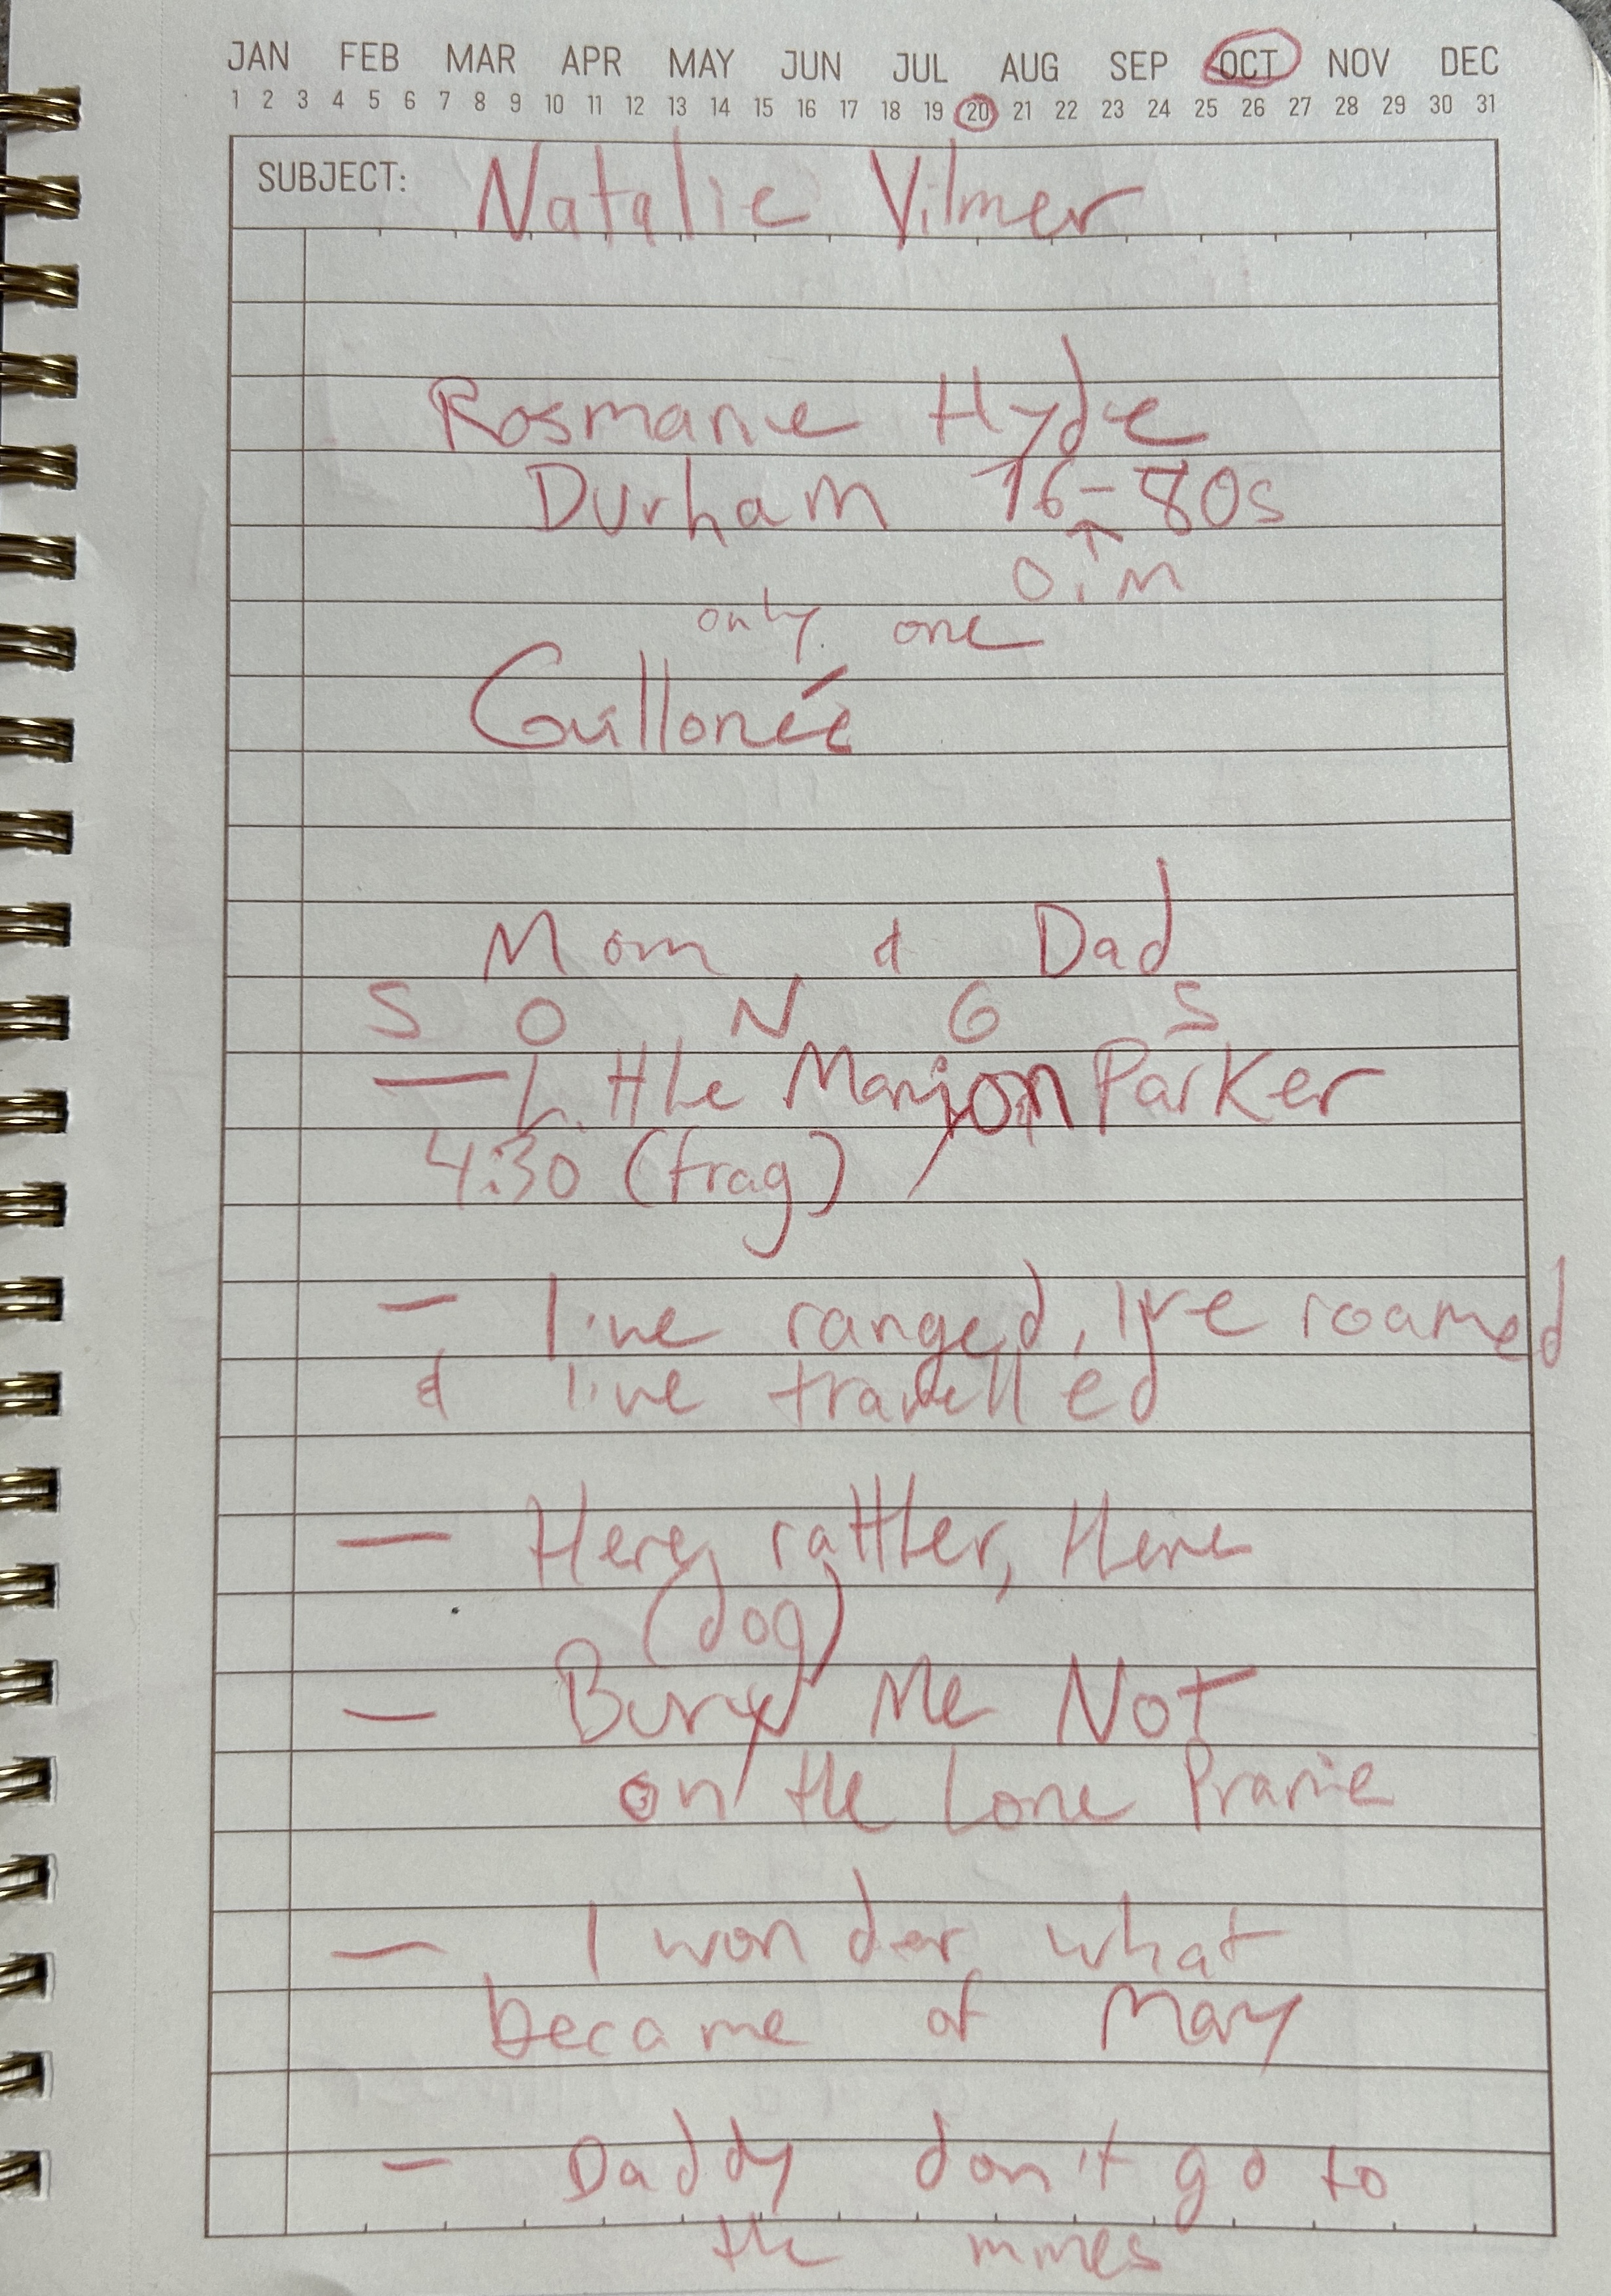 JAN FEB MAR APR MAY JUN JUL AUG SEP OCT NOV DEC
1 2 3 4 5 6 7 8 9 10 11 12 13 14 15 16 17 18 19 20 21 22 23 24 25 26 27 28 29 30 31
SUBJECT: Natalie Vilmer
Rosmarie Hyde
Durham 76-80s
only one
Mom & Dad
S O N G S
— Little Marion Parker
4:30 (frag)
— I've ranged, I've roamed
& I've travelled
— Here, rattler, Here
(dog)
— Bury Me Not
on the Lone Prarie
— I wonder what
became of Mary
— Daddy don't go to
the mines